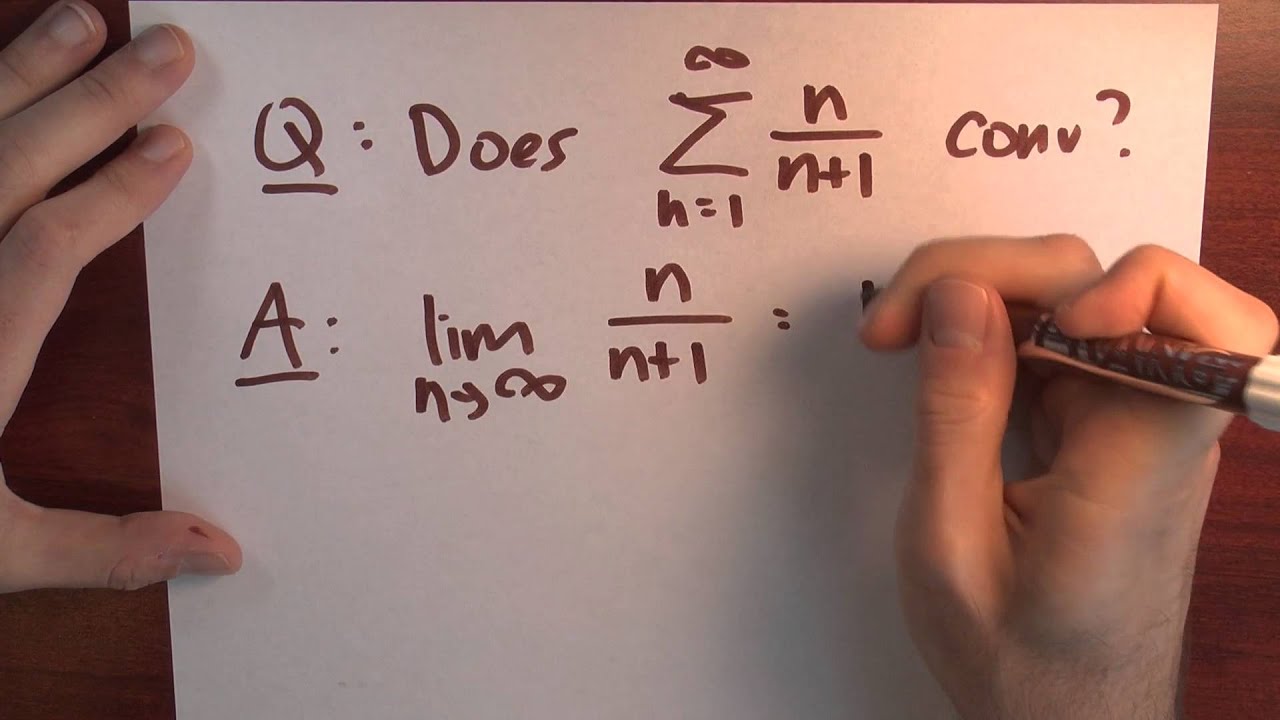 Q: Does ∞∑n=1 n/(n+1) conv?
A: lim n→∞ n/(n+1) =